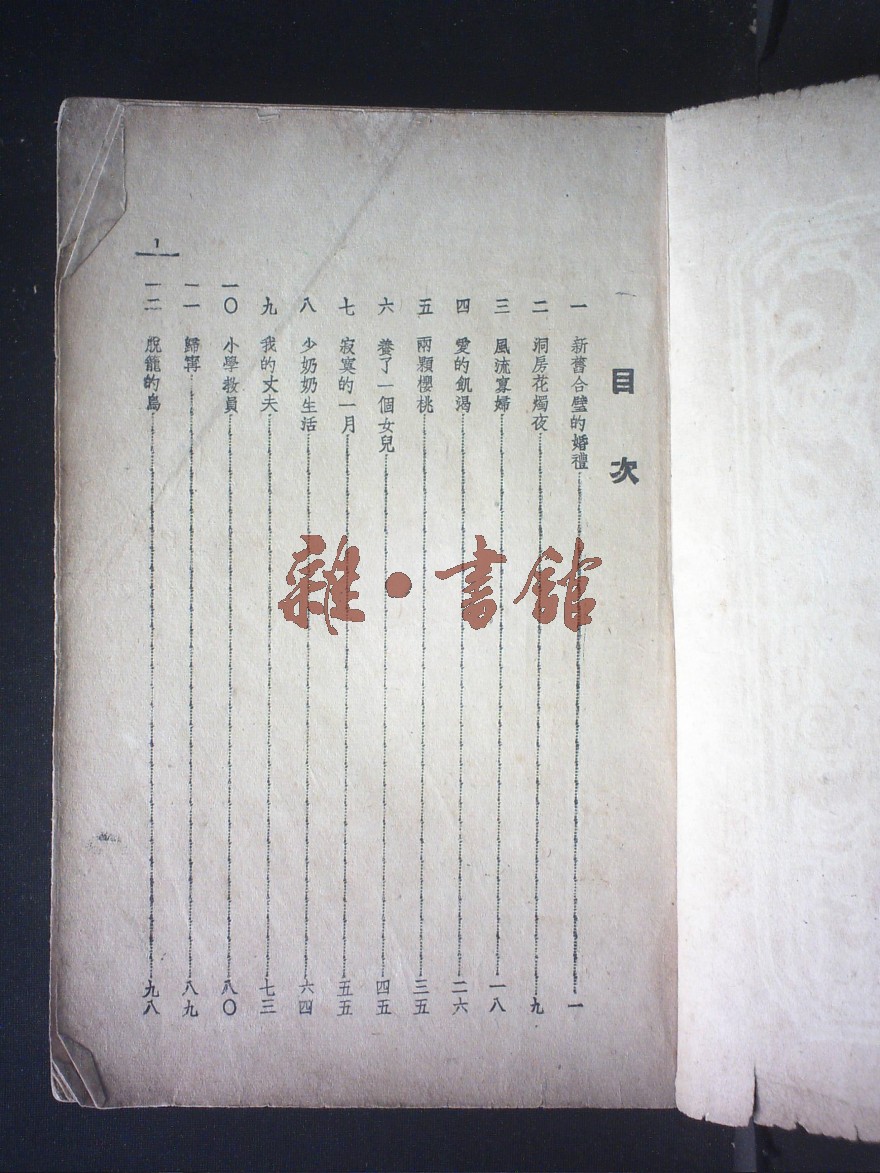 目次
一 新舊合璧的婚禮 一
二 洞房花燭夜 九
三 風流寡婦 一八
四 愛的飢渴 二六
五 兩顆櫻桃 三五
六 養了一個女兒 四五
七 寂寞的一月 五五
八 少奶奶生活 六四
九 我的丈夫 七三
一〇 小學教員 八〇
一一 歸寗 八九
一二 脫籠的鳥 九八
1
雜·書館